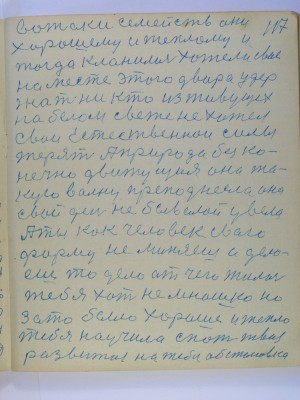 вот ски семейств они 117
хорошему и теплому и
тогда кланился хотели свае
на месте этого двара удер
жат ни кто из живущех
на белом свете не хотел
свои Естественнои силы
терят А природа бес ко-
нечно движущия она та-
кую валну преподнесла она
свой ден не баль мой увела
А ты как человек сваго
форму не миняеш и дею-
еш то дело от чего жилоя
тебя хот не мношко но
Зато было Хорошее и тепло
тебя научила
развитоя на тебя обстановка